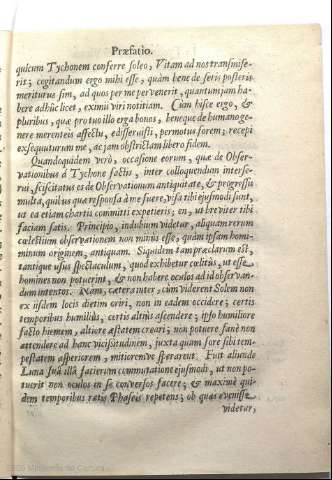 Præfatio.
quicum Tychonem conferre soleo, Vitam ad nos transmise-
ris; cogitandum ergo mihi esse, quàm bene de seris posteris
meriturus sim, ad quos per me pervenerit, quantumjam ha-
bere adhûc licet, eximii viri notitiam. Cùm hisce ergo, &
pluribus, quæ pro tuo illo erga bonos, beneque de humanoge-
nere merenteis affectu, edisseruisti, permotus forem; recepi
exsequuturum me, ac jam obstrictam libero fidem.
Quandoquidem verò, occasione eorum, quæ de Obser-
vationibus à Tychone factis, inter colloquendum interse-
rui, sciscitatus es de Observationum antiquitate, & progressu
multa, quibus quæ responsa à me fuere, visa tibi ejusmodi sunt,
ut ea etiam chartis committi expetieris; en, ut breviter tibi
faciam satis. Principio, indubium videtur, aliquam rerum
cœlestium observationem non minus esse, quàm ipsam homi-
minum originem, antiquam. Siquidem tam præclarum est,
tantique usus spectaculum, quod exhibetur cœlitùs, ut esse
homines non potuerint, & non habere oculos ad id observan-
dum intentos. Nam, cætera inter, cùm viderent Solem non
ex iisdem locis dietim oriri, non in eadem occidere; certis
temporibus humiliùs, certis altiùs ascendere; ipso humiliore
facto hiemem, altiore æstatem creari; non potuere sanè non
attendere ad hanc vicissitudinem, juxta quam fore sibi tem-
pestatem asperiorem, mitioremve sperarent. Fuit aliunde
Luna suâ illâ facierum commutatione ejusmodi, ut non po-
tuerit non oculos in se conversos facere; & maximè qui-
dem temporibus ratis Phaseis repetens; ob quas evenisse
videtur,